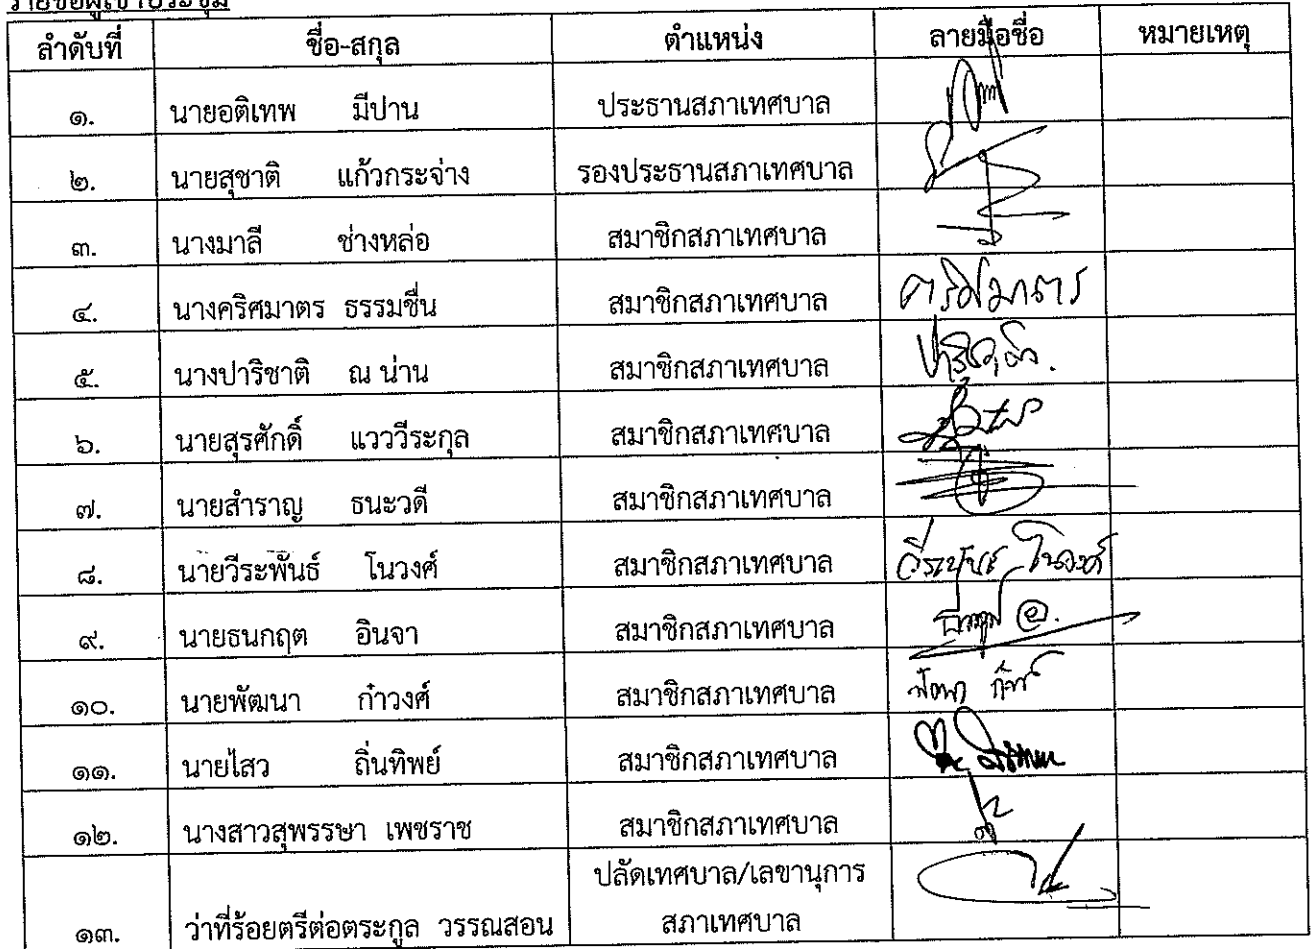 รายชื่อผู้เข้าประชุม
ลำดับที่ ชื่อ-สกุล ตำแหน่ง ลายมือชื่อ หมายเหตุ
๑. นายอติเทพ มีปาน ประธานสภาเทศบาล
๒. นายสุชาติ แก้วกระจ่าง รองประธานสภาเทศบาล
๓. นางมาลี ช่างหล่อ สมาชิกสภาเทศบาล
๔. นางคริศมาตร ธรรมชื่น สมาชิกสภาเทศบาล คริศมาตร
๕. นางปาริชาติ ณ น่าน สมาชิกสภาเทศบาล ปาริชาติ.
๖. นายสุรศักดิ์ แวววีระกุล สมาชิกสภาเทศบาล
๗. นายสำราญ ธนะวดี สมาชิกสภาเทศบาล
๘. นายวีระพันธ์ โนวงศ์ สมาชิกสภาเทศบาล วีระพันธ์ โนวงศ์
๙. นายธนกฤต อินจา สมาชิกสภาเทศบาล
๑๐. นายพัฒนา ก๋าวงศ์ สมาชิกสภาเทศบาล
๑๑. นายไสว ถิ่นทิพย์ สมาชิกสภาเทศบาล
๑๒. นางสาวสุพรรษา เพชราช สมาชิกสภาเทศบาล
๑๓. ว่าที่ร้อยตรีต่อตระกูล วรรณสอน ปลัดเทศบาล/เลขานุการ
สภาเทศบาล